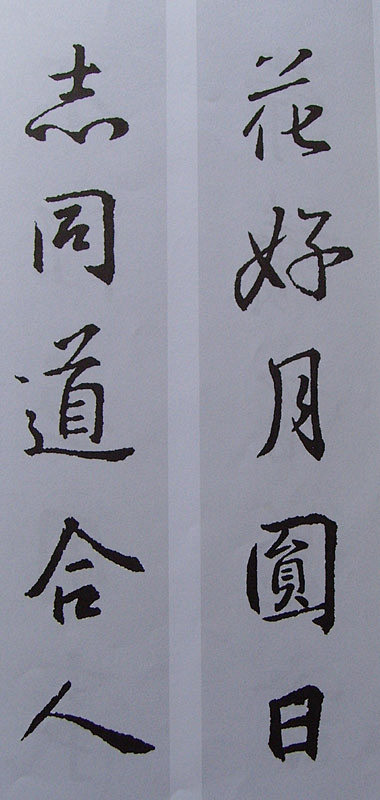 花好月圓日
志同道合人